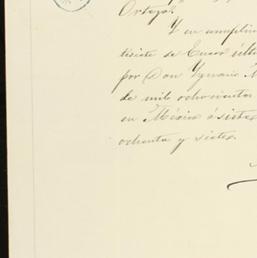 Ortega.
Y en cumplim
tisiete de Enero últi
por Don Ygnacio M
de mil ochocientos
en México á siete
ochenta y siete.